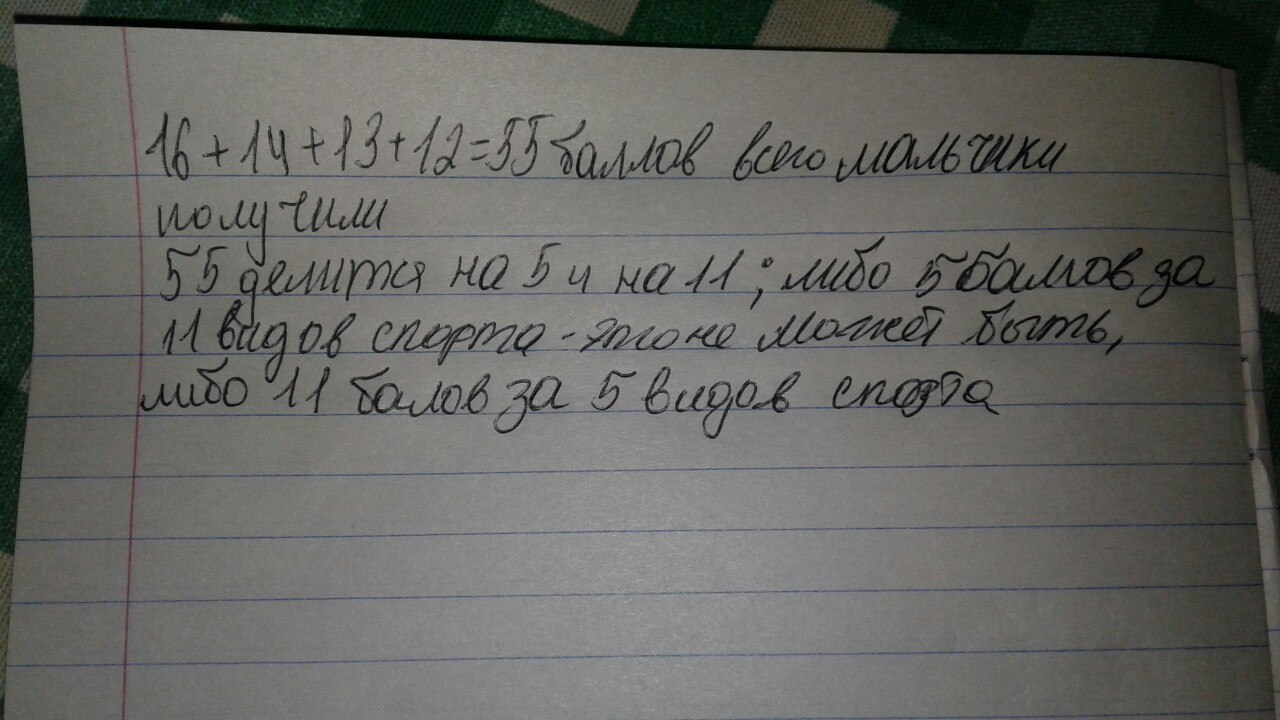 16+14+13+12=55 баллов всего мальчики
получили
55 делится на 5 и на 11; либо 5 баллов за
11 видов спорта - это не может быть,
либо 11 балов за 5 видов спорта